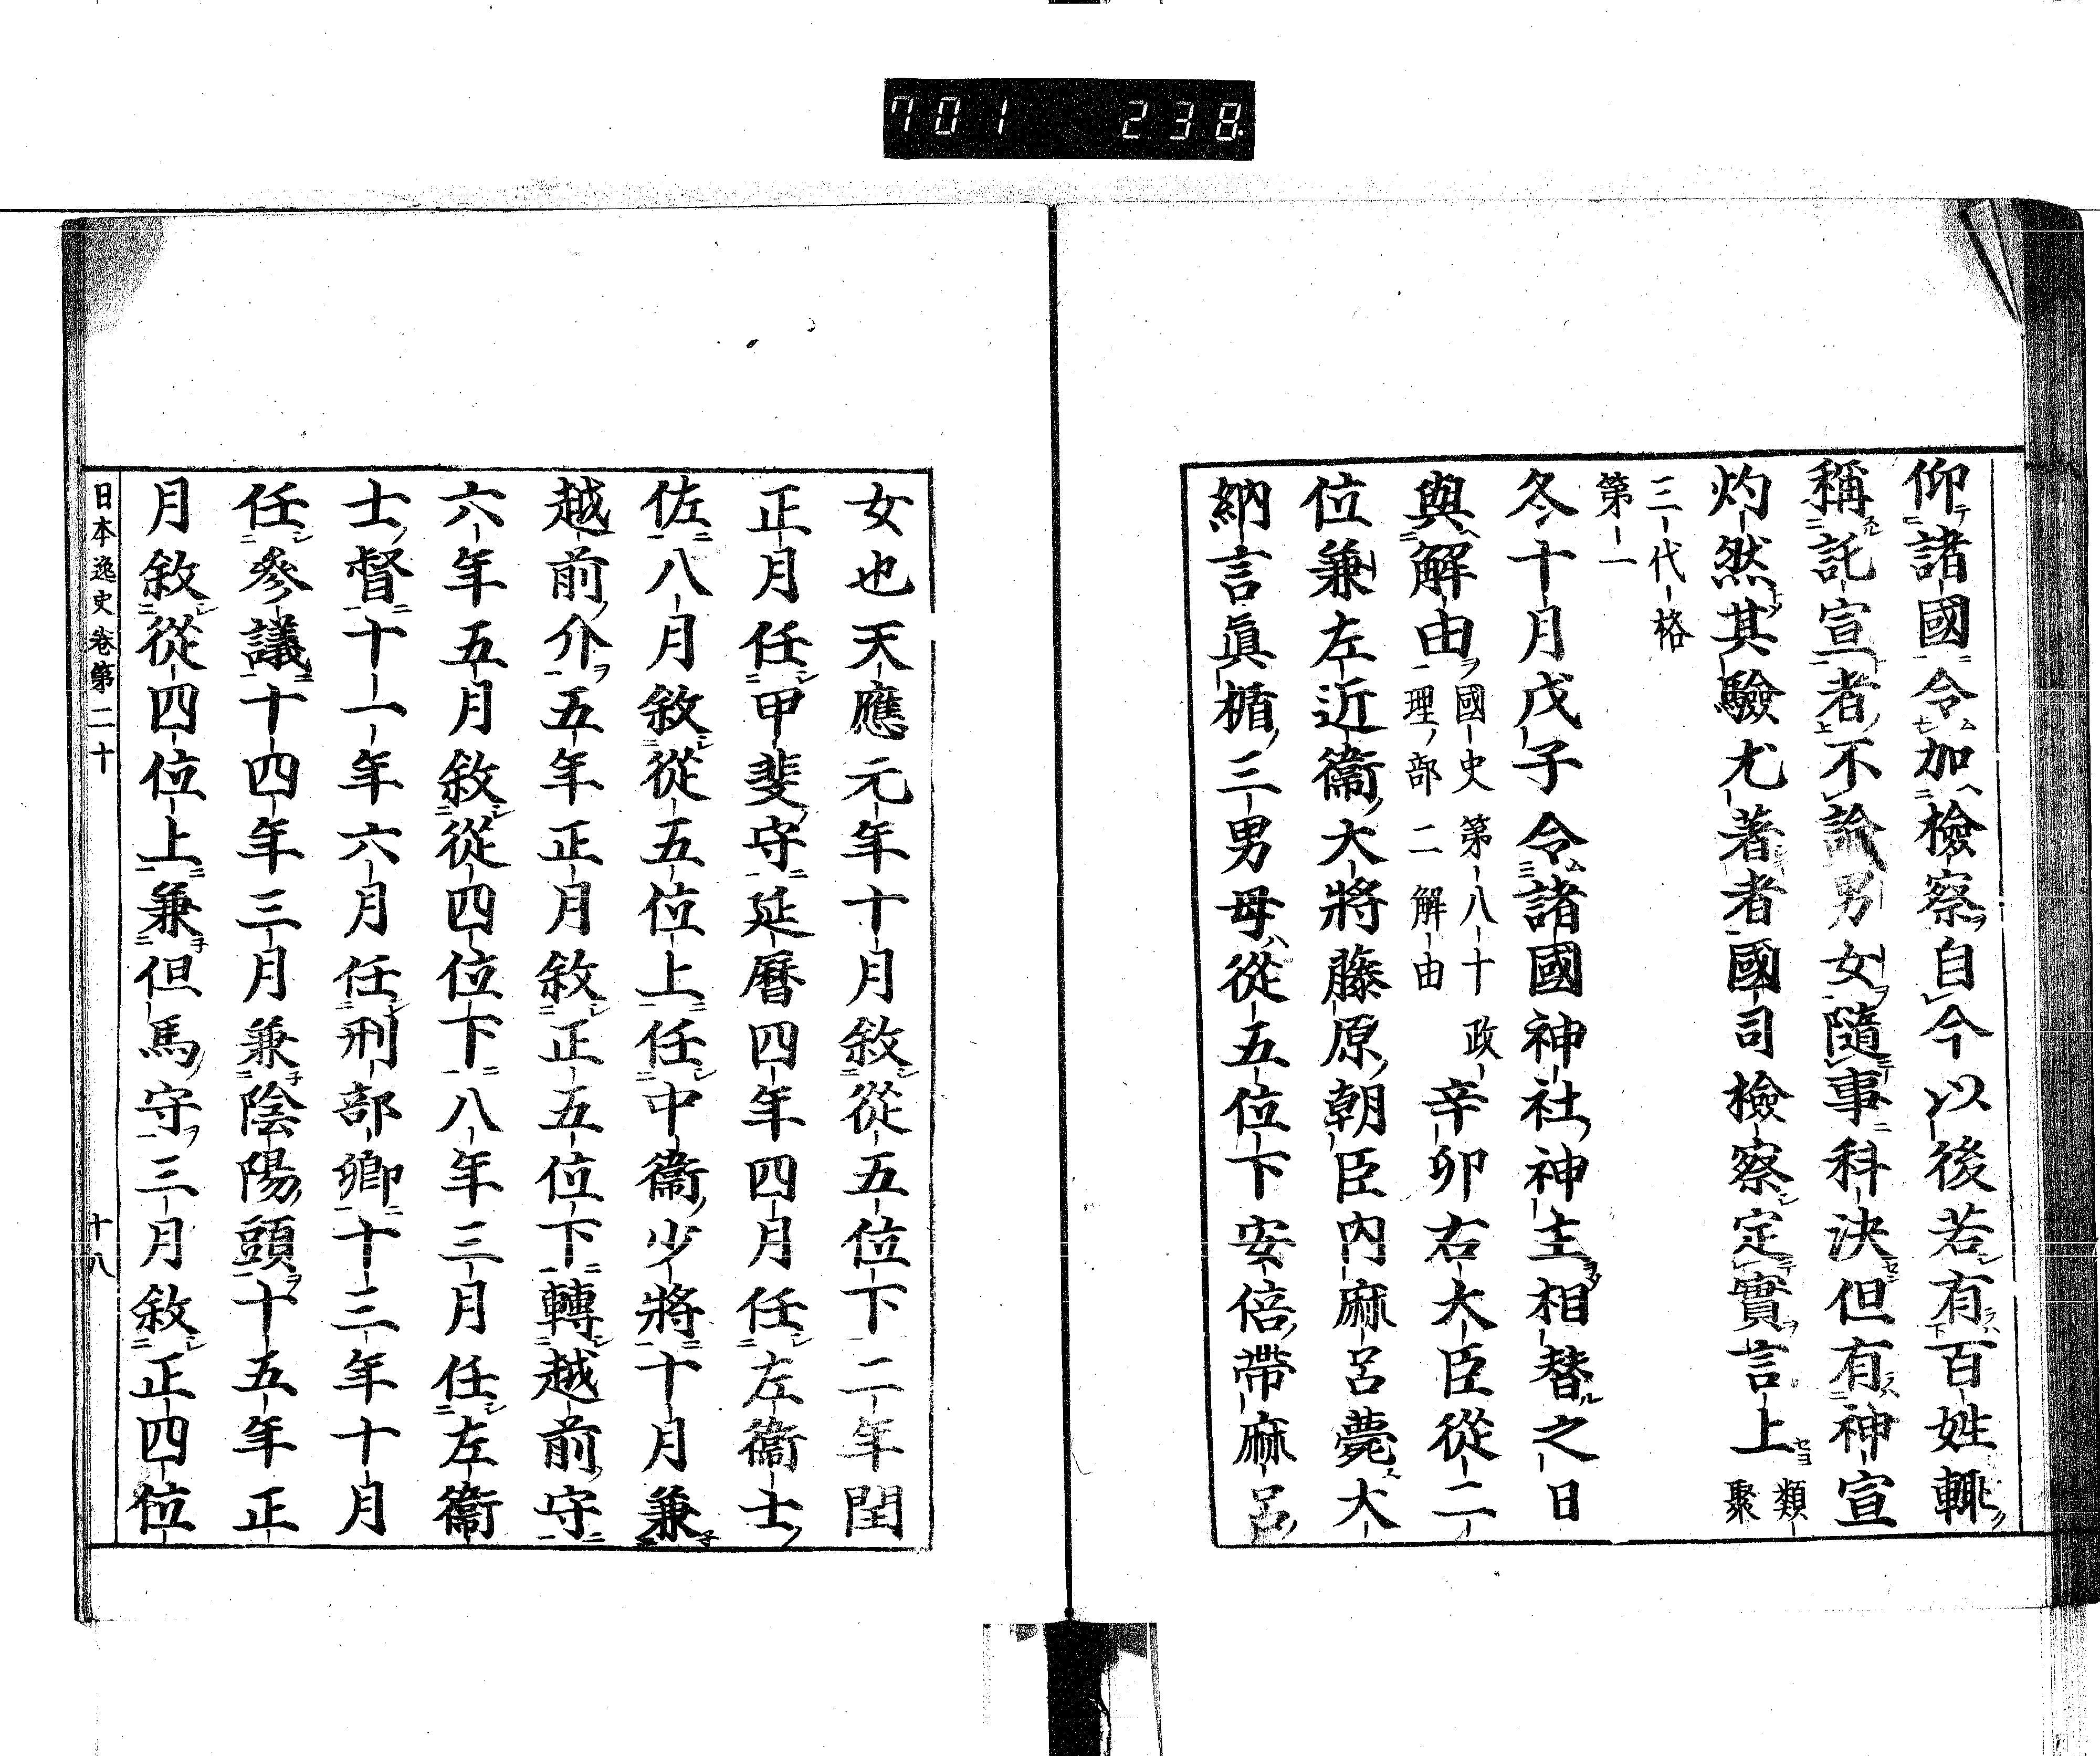 701 238
仰諸國令加檢察自今以後若有百姓輙
稱託宣者不論男女隨事科決但有神宣
灼然其驗尤著者國司檢察定實言上類聚
三代格
第一
冬十月戊子令諸國神社神主相替之日
與解由國史第八十政理部二解由辛卯右大臣從二
位兼左近衞大將藤原朝臣內麻呂薨大
納言眞楯三男母從五位下安倍帶麻呂
女也天應元年十月敘從五位下二年閏
正月任甲斐守延曆四年四月任左衞士
佐八月敘從五位上任中衞少將十月兼
越前介五年正月敘正五位下轉越前守
六年五月敘從四位下八年三月任左衞
士督十一年六月任刑部卿十三年十月
任參議十四年三月兼陰陽頭十五年正
月敘從四位上兼但馬守三月敘正四位
日本逸史卷第二十 十八